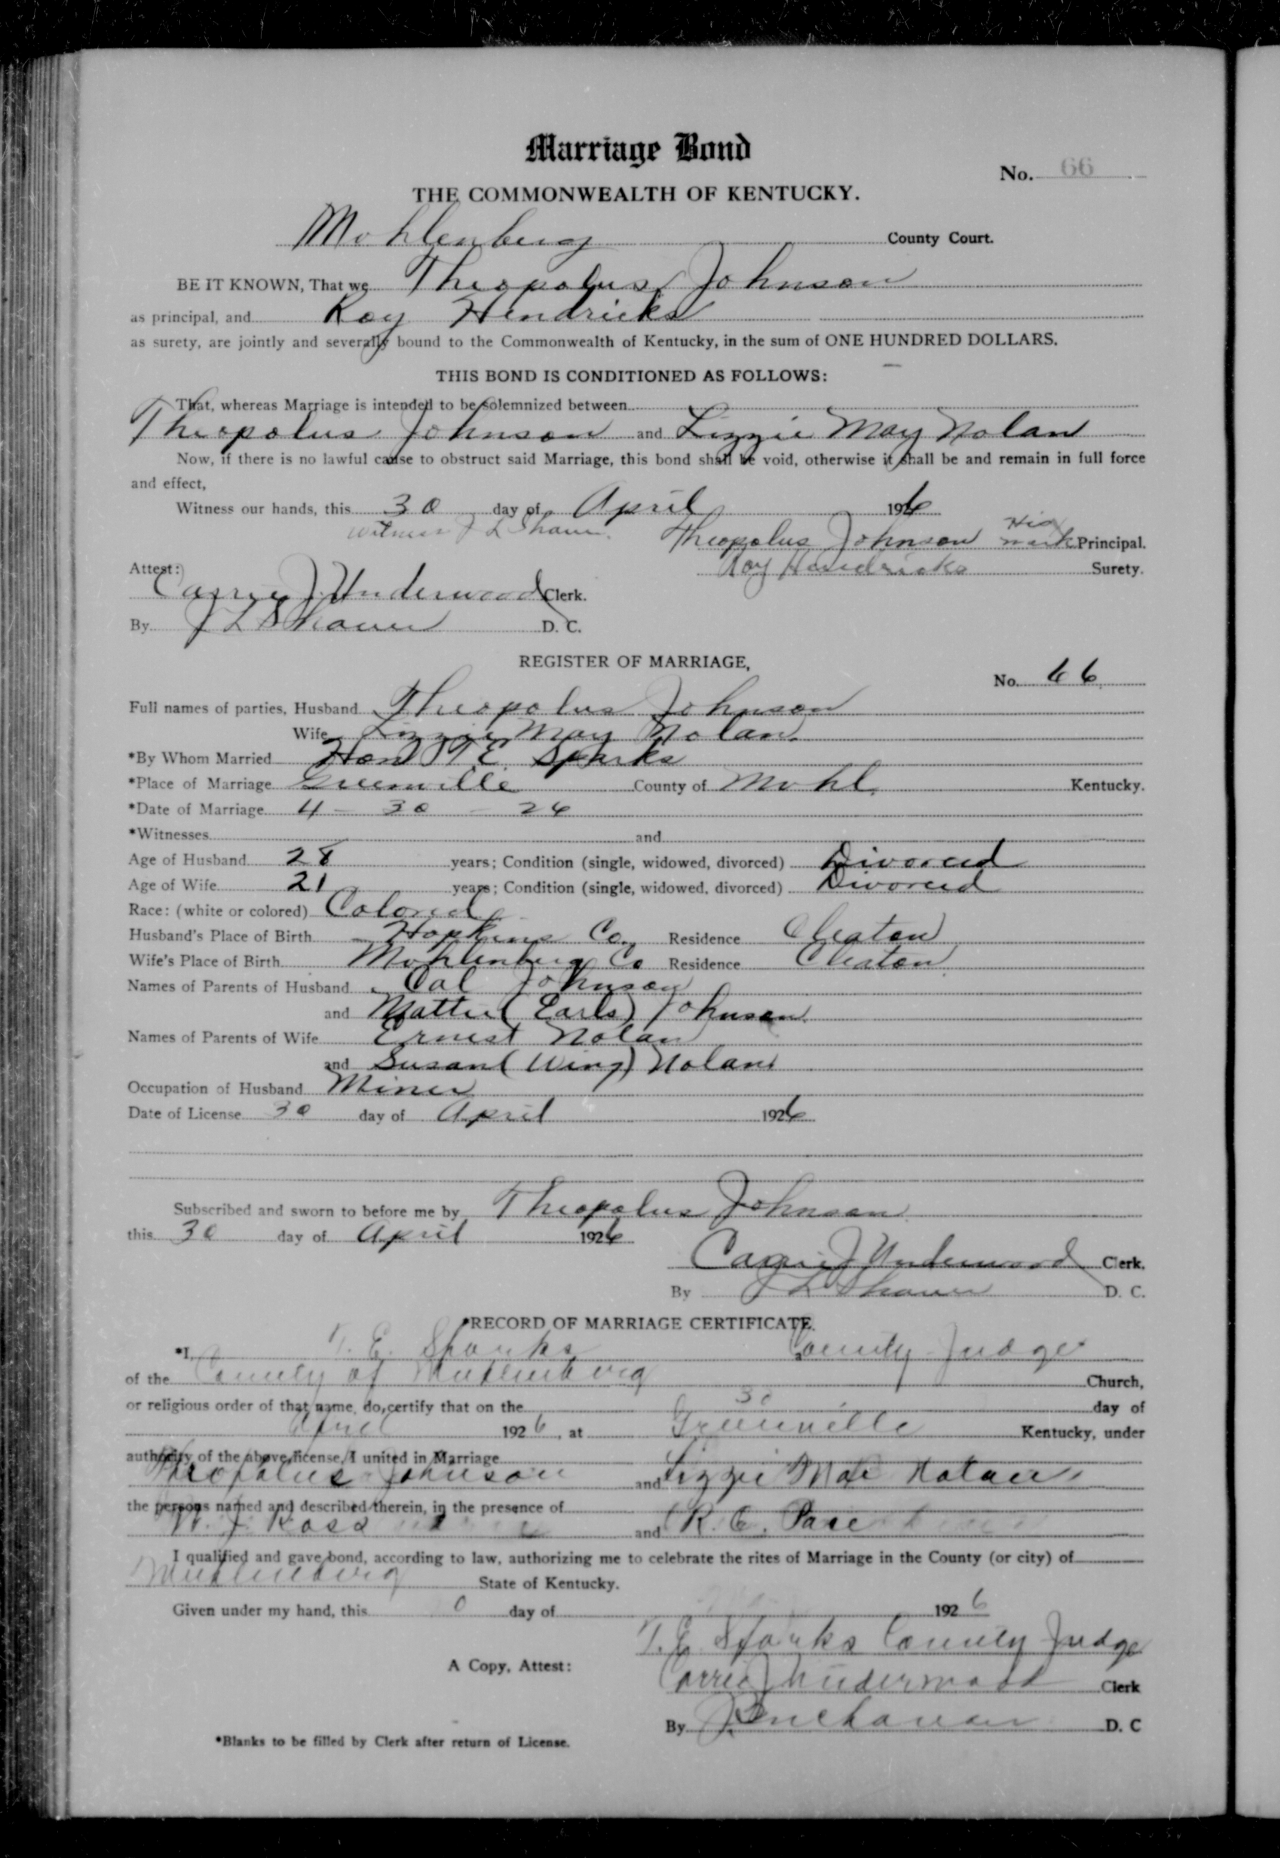 Marriage Bond
No. 66
THE COMMONWEALTH OF KENTUCKY.
Mohlenberg County Court.
BE IT KNOWN, That we Theopolus Johnson
as principal, and Roy Hendricks
as surety, are jointly and severally bound to the Commonwealth of Kentucky, in the sum of ONE HUNDRED DOLLARS.
THIS BOND IS CONDITIONED AS FOLLOWS:
That, whereas Marriage is intended to be solemnized between
Theopolus Johnson and Lizzie May Nolan
Now, if there is no lawful cause to obstruct said Marriage, this bond shall be void, otherwise it shall be and remain in full force
and effect,
Witness our hands, this 30 day of April 1926
Witness J L Shaver Theopolus Johnson His mark Principal.
Roy Hendricks Surety.
Attest:
Carrie J Underwood Clerk.
By J L Shaver D. C.
REGISTER OF MARRIAGE,
No. 66
Full names of parties, Husband Theopolus Johnson
Wife Lizzie May Nolan
*By Whom Married Hon T E. Sparks
*Place of Marriage Greenville County of Mohl. Kentucky.
*Date of Marriage 4 - 30 - 26
*Witnesses and
Age of Husband 28 years; Condition (single, widowed, divorced) Divorced
Age of Wife 21 years; Condition (single, widowed, divorced) Divorced
Race: (white or colored) Colored
Husband's Place of Birth Hopkins Co. Residence Cleaton
Wife's Place of Birth Mohlenberg Co Residence Cleaton
Names of Parents of Husband Cal Johnson
and Mattie (Earls) Johnson
Names of Parents of Wife Ernest Nolan
and Susan (Wing) Nolan
Occupation of Husband Miner
Date of License 30 day of April 1926
Subscribed and sworn to before me by Theopolus Johnson
this 30 day of April 1926
Carrie J Underwood Clerk.
By J L Shaver D. C.
RECORD OF MARRIAGE CERTIFICATE.
*I, T. E. Sparks County Judge
of the County of Muhlenberg Church,
or religious order of that name, do certify that on the 30 day of
April 1926, at Greenville Kentucky, under
authority of the above license, I united in Marriage
Theopolus Johnson and Lizzie Mae Nolan
the persons named and described therein, in the presence of
W. J. Ross and R. E. Pace
I qualified and gave bond, according to law, authorizing me to celebrate the rites of Marriage in the County (or city) of
Muhlenberg State of Kentucky.
Given under my hand, this 0 day of 1926
T. E. Sparks County Judge
A Copy, Attest: Carrie J Underwood Clerk
By J. Buchanan D. C
*Blanks to be filled by Clerk after return of License.